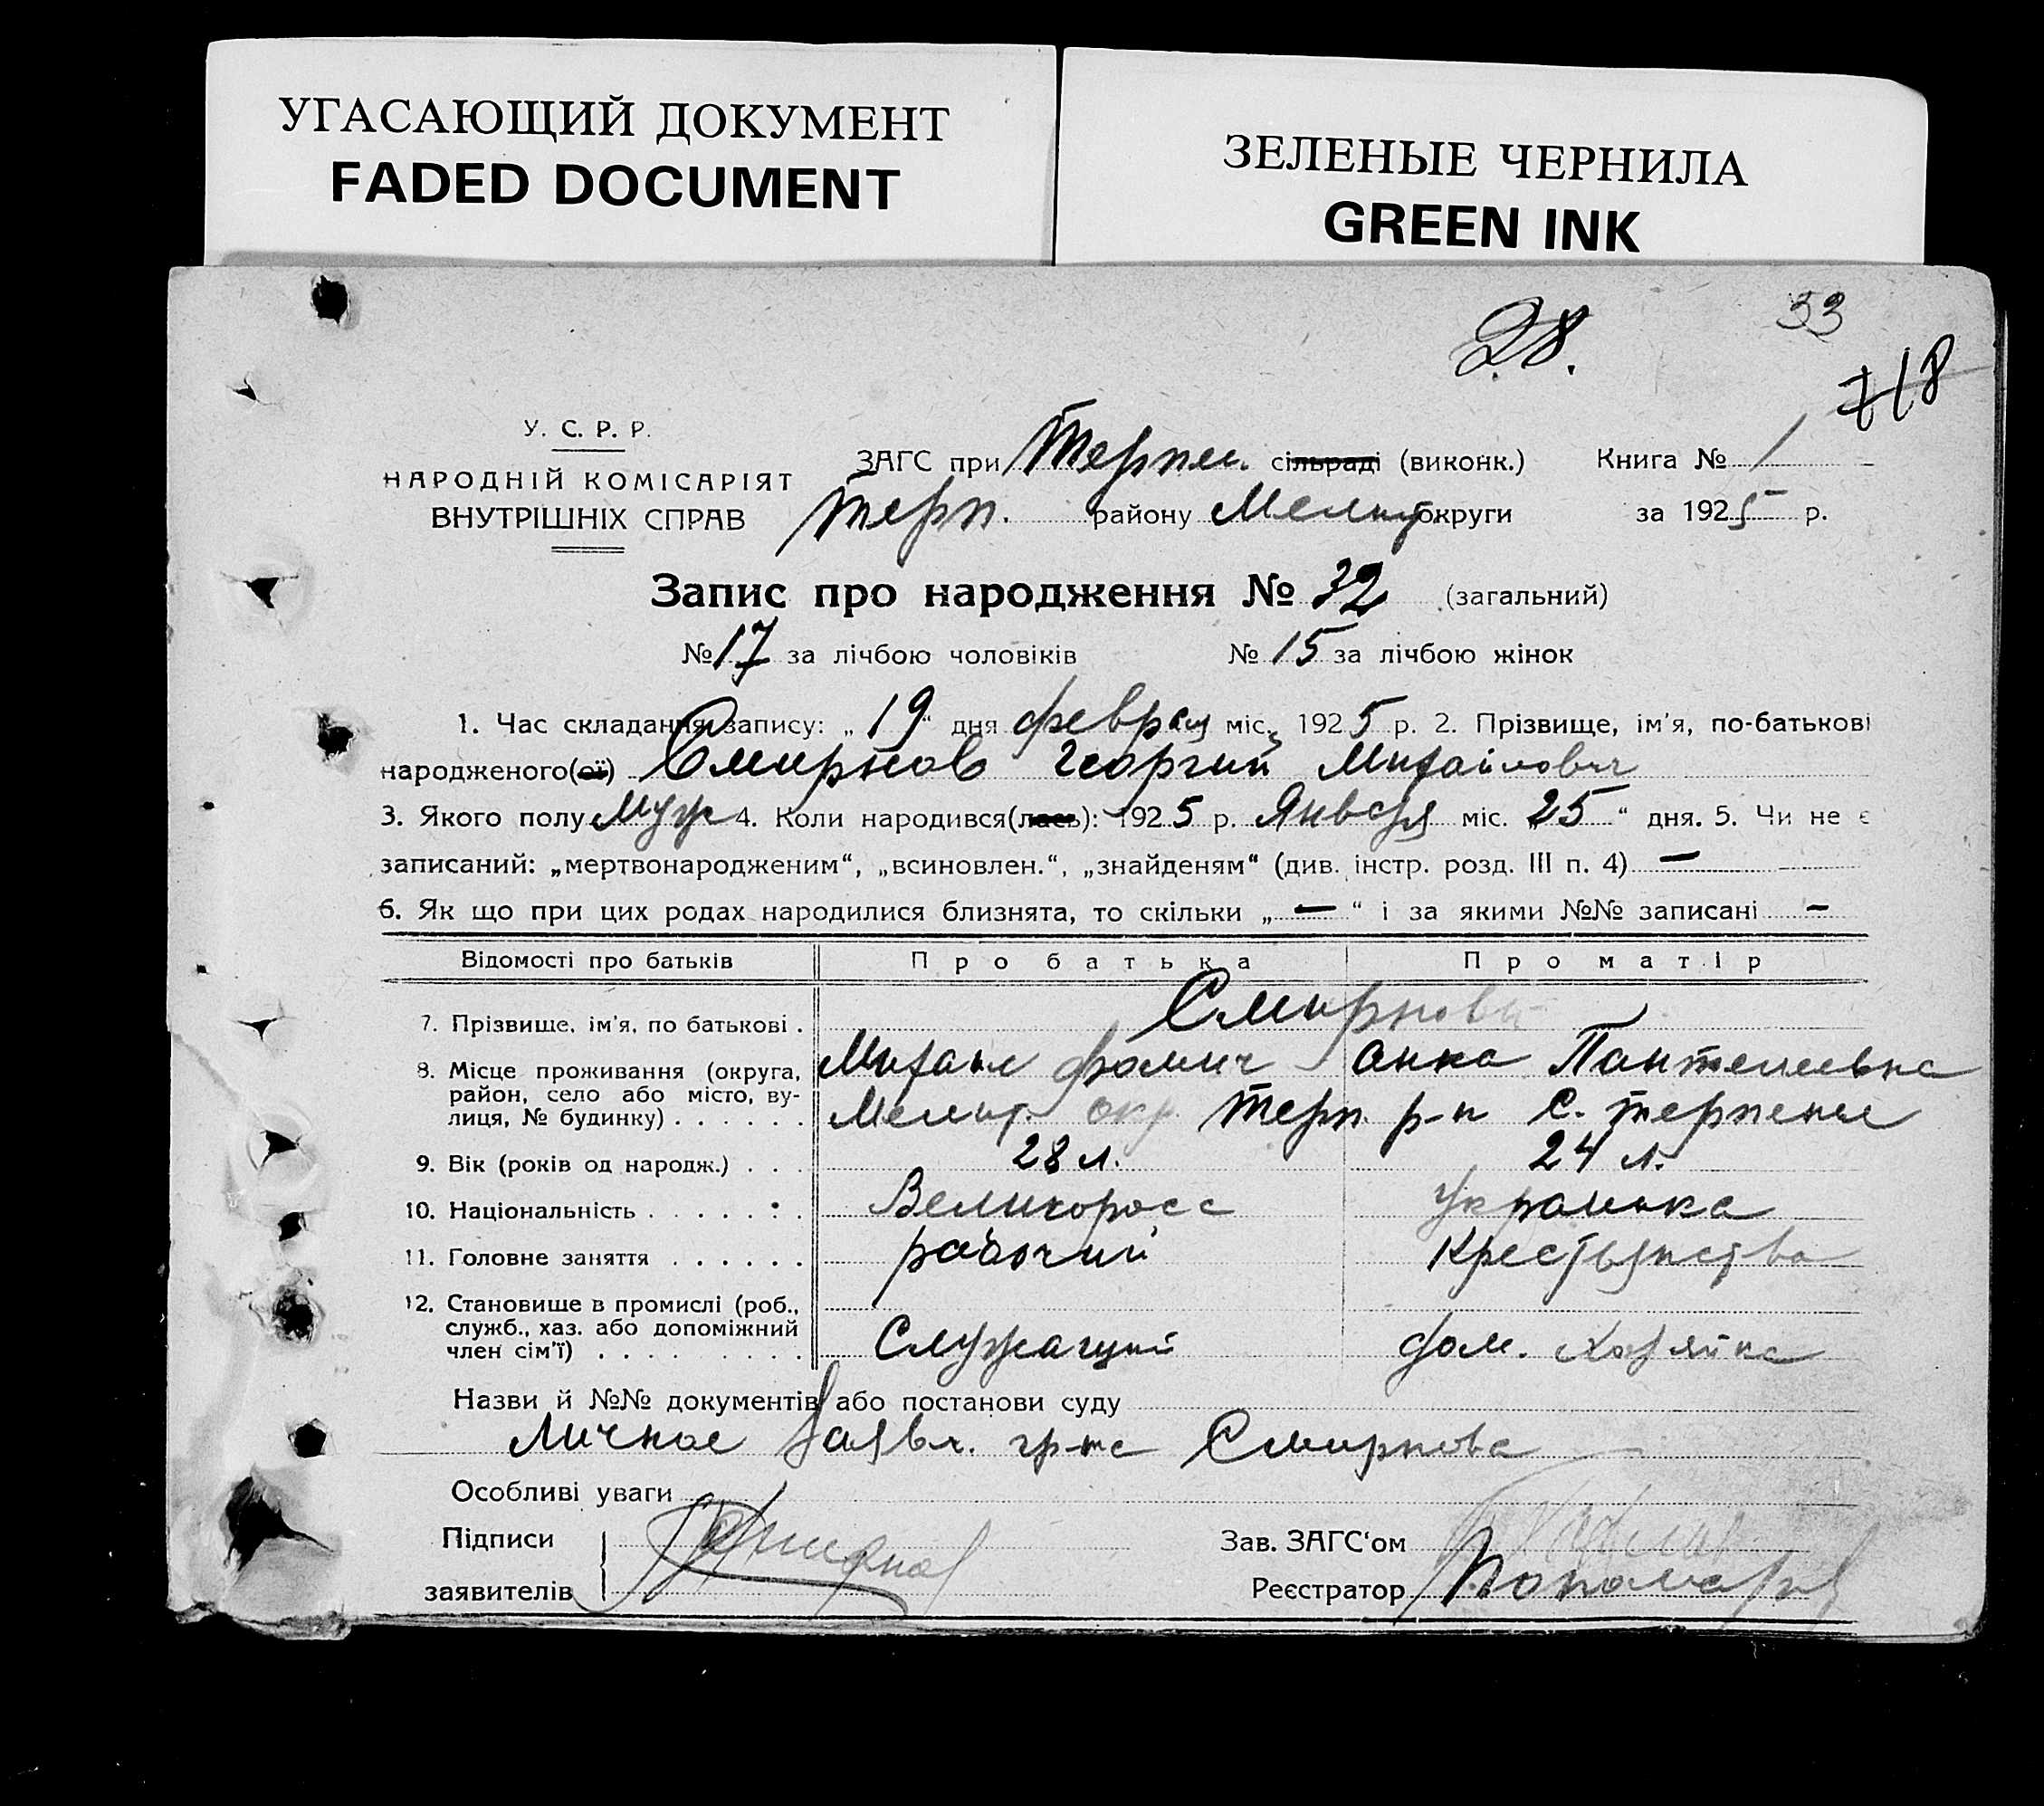 УГАСАЮЩИЙ ДОКУМЕНТ
FADED DOCUMENT
ЗЕЛЕНЫЕ ЧЕРНИЛА
GREEN INK
28.
33
718
У. С. Р. Р.
НАРОДНІЙ КОМІСАРІЯТ
ВНУТРІШНІХ СПРАВ
ЗАГС при Терпен. сільраді (виконк.) Книга № 1
Терп. району Мелит округи за 1925 р.
Запис про народження № 32 (загальний)
№ 17 за лічбою чоловіків № 15 за лічбою жінок
1. Час складання запису: „19“ дня февраля міс. 1925 р. 2. Прізвище, ім'я, по-батькові
народженого(ої) Смирнов Георгий Михайлович
3. Якого полу Муж 4. Коли народився(лась): 1925 р. Января міс. „25“ дня. 5. Чи не є
записаний: „мертвонародженим“, „всиновлен.“, „знайденям“ (див. інстр. розд. III п. 4) —
6. Як що при цих родах народилися близнята, то скільки „—“ і за якими №№ записані —
Відомості про батьків Про батька Про матір
7. Прізвище, ім'я, по батькові . Смирновы
Михаил Фомич Анна Пантелеевна
8. Місце проживання (округа, район, село або місто, ву-
лиця, № будинку) . . . . . . Мелит. окр. Терп. р-н с. Терпение
9. Вік (років од народж.) . . . 28 л. 24 л.
10. Національність . . . . . . . Великоросс Украинка
11. Головне заняття . . . . . . рабочий Крестьянство
12. Становище в промислі (роб.,
служб., хаз. або допоміжний
член сім'ї) . . . . . . . . . Служащий дом. Хозяйка
Назви й №№ документів або постанови суду
Личное Заявл. гр-на Смирнова
Особливі уваги
Підписи
заявителів
Смирнов
Зав. ЗАГС'ом
Реєстратор Пономарев